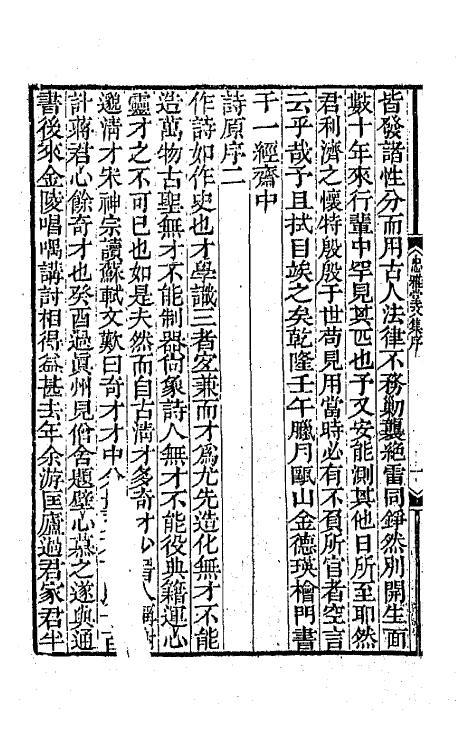 忠雅堂文集序
皆發諸性分而用古人法律不務勦襲絕雷同錚然別開生面
數十年來行輩中罕見其匹也予又安能測其他日所至耶然
君利濟之懷特殷殷于世苟見用當時必有不負所官者空言
云乎哉予且拭目竢之矣乾隆壬午臘月甌山金德瑛檜門書
于一經齋中
詩原序二
作詩如作史也才學識三者宜兼而才爲尤先造化無才不能
造萬物古聖無才不能制器尚象詩人無才不能役典籍運心
靈才之不可已也如是夫然而自古清才多奇才少
邈清才宋神宗讀蘇軾文歎曰奇才才中
計蔣君心餘奇才也癸酉過眞州見僧舍題壁心慕之遂與通
書後來金陵唱喁講討相得益甚去年余游匡廬過君家君半